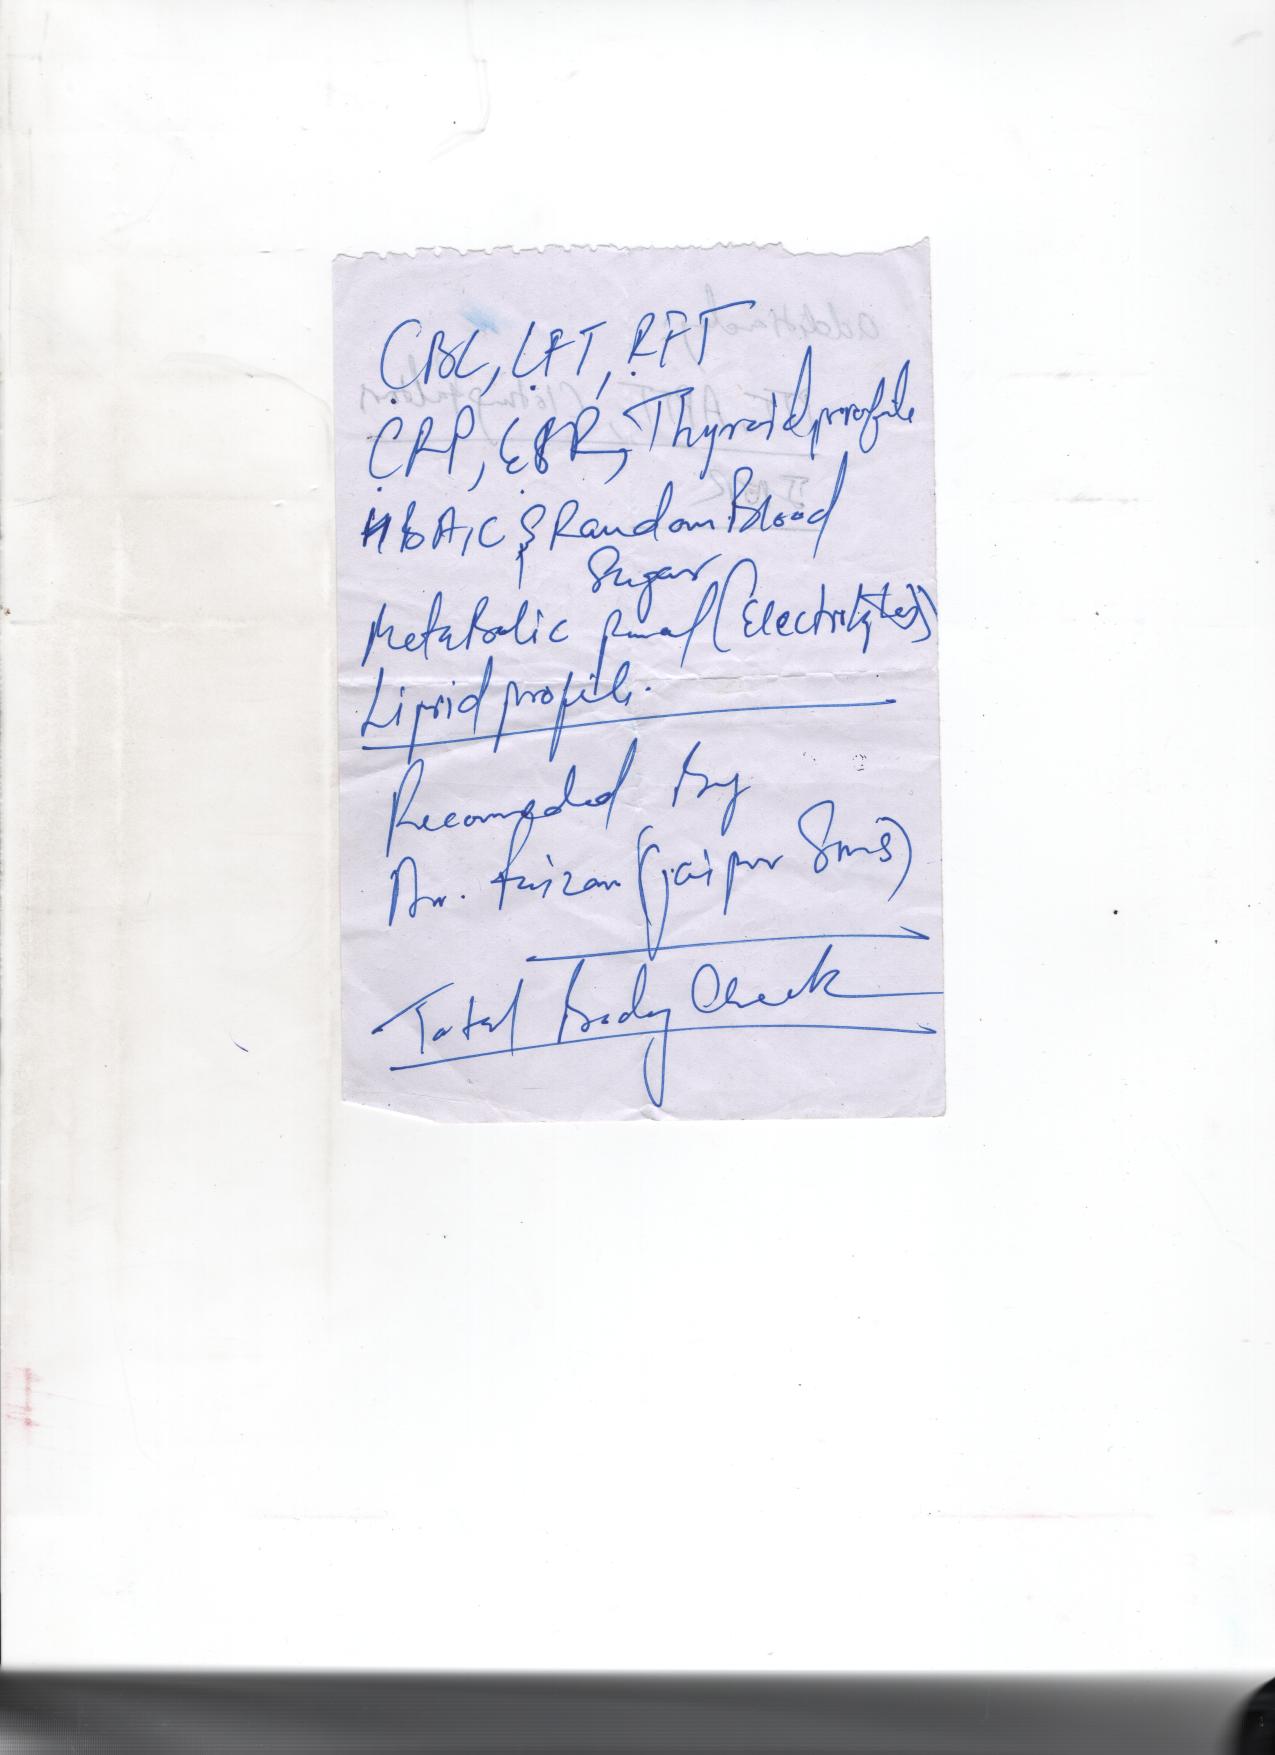 CBC, LFT, RFT
CRP, ESR, Thyroid profile
HbA1C & Random Blood
Sugar
Metabolic panel (Electrolytes)
Lipid profile.
Recomended By
Dr. Faizan (Jaipur SMS)
Total Body Check